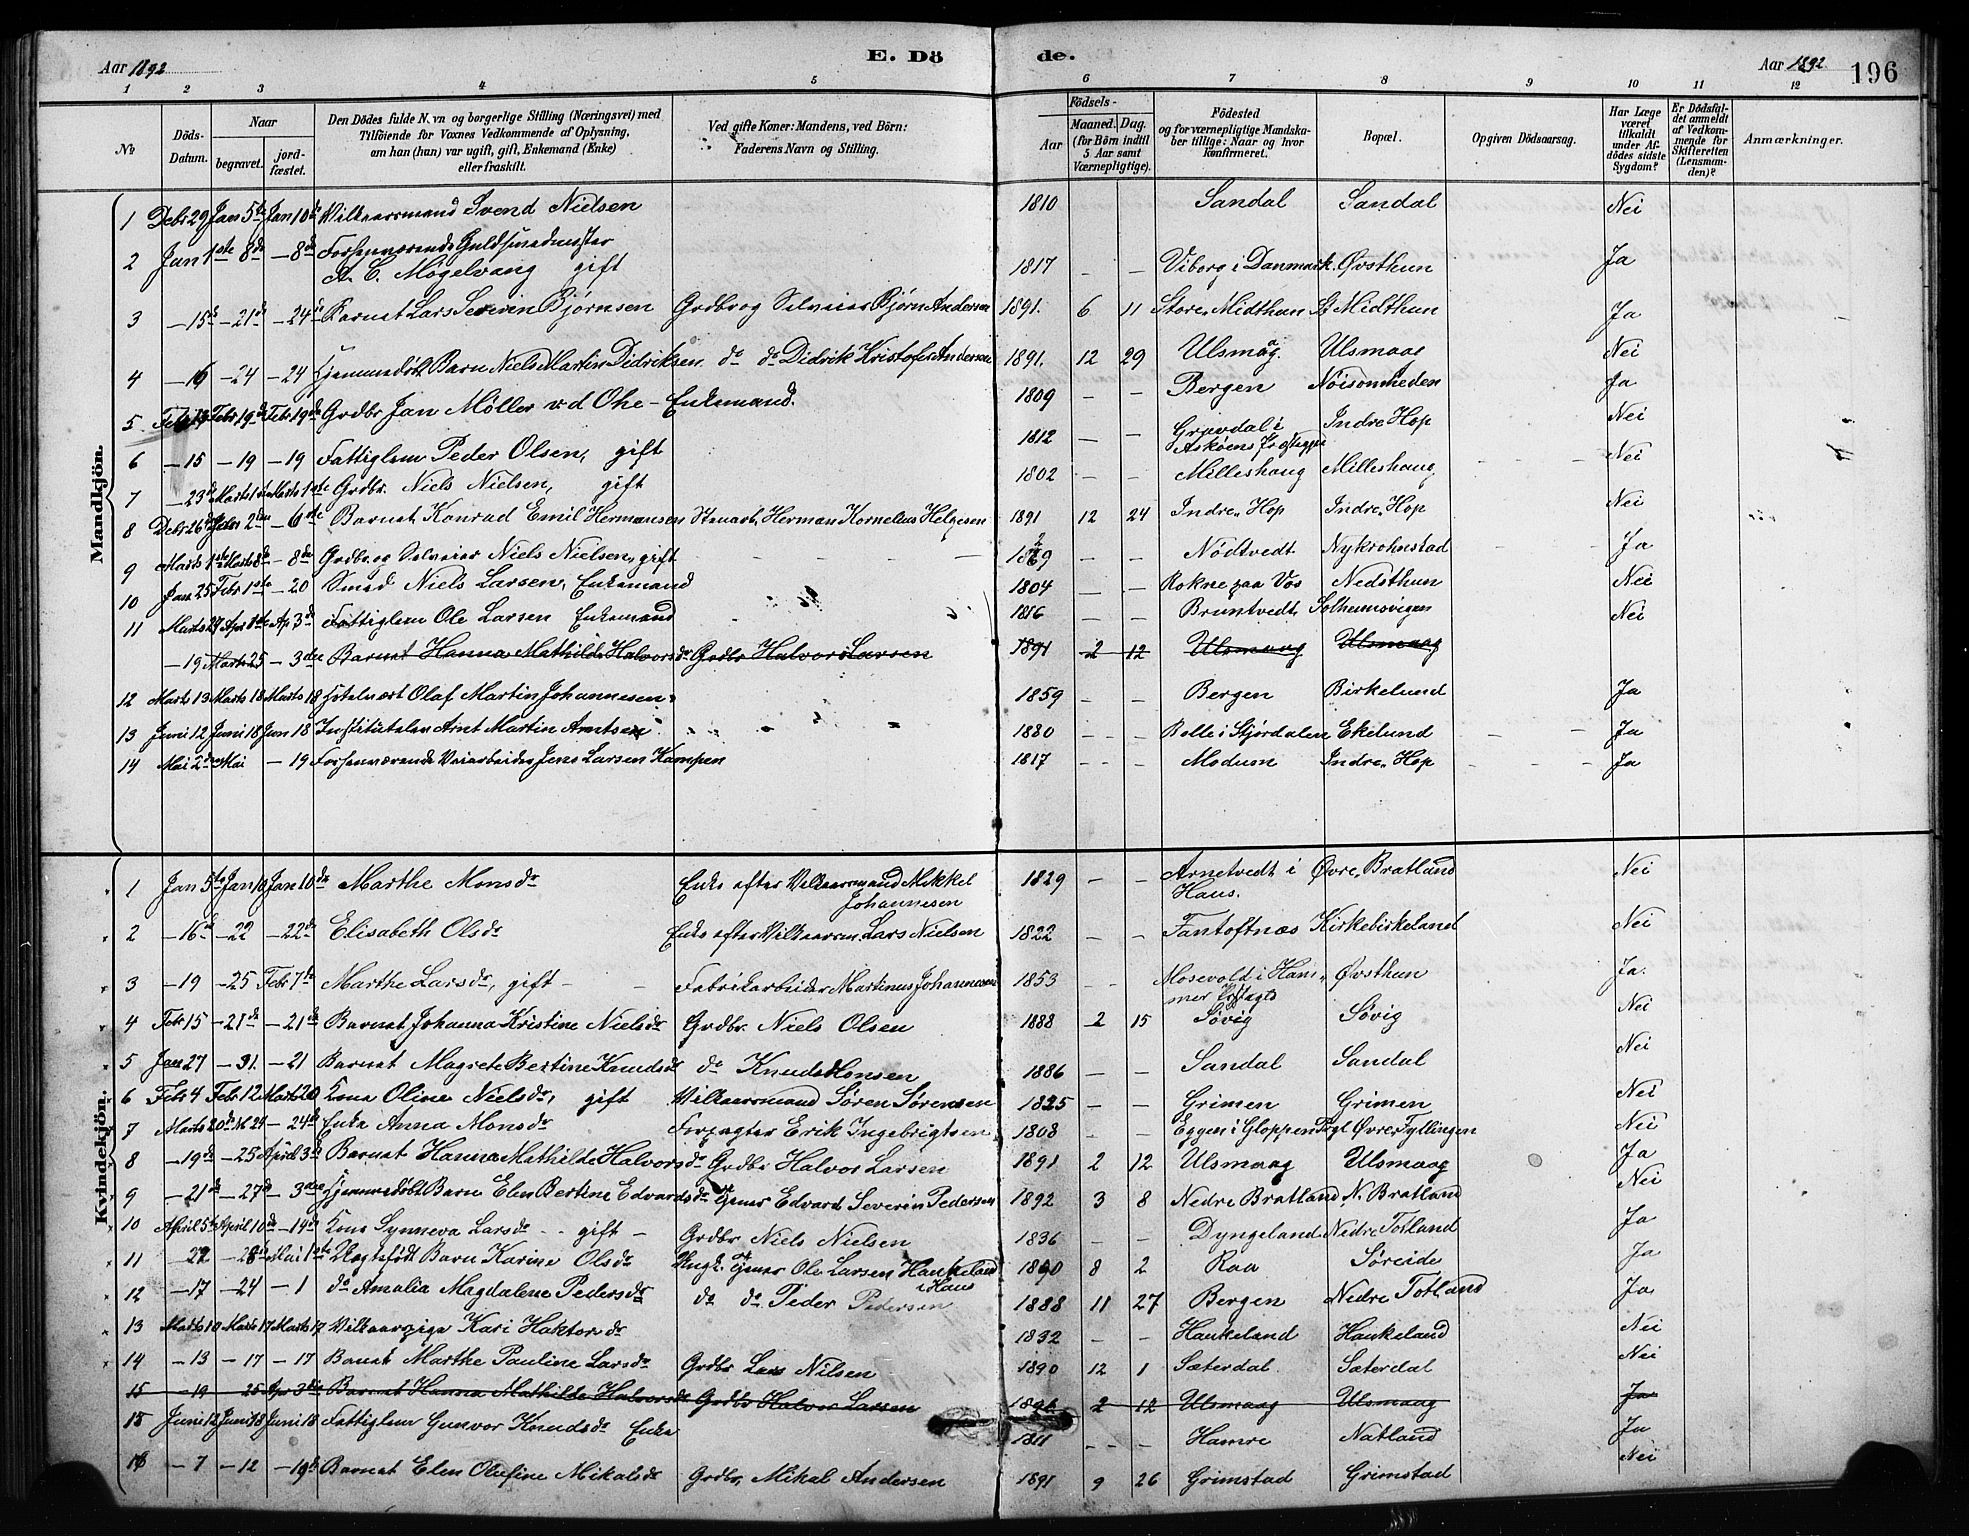 Aar 1892 E. Dö de. Aar 1892. 196
1 2 3 4 5 6 7 8 9 10 11 12
No Döds-Datum. Naar begravet. jordfæstet. Den Dödes fulde Navn og borgerlige Stilling (Næringsvei) med Tilföiende for Voxnes Vedkommende af Oplysning, om han (hun) var ugift, gift, Enkemand (Enke) eller fraskilt. Ved gifte Koner: Mandens, ved Börn: Faderens Navn og Stilling. Födsels- Aar Maaned. Dag. (for Börn indtil 5 Aar samt Værnepligtige). Födested og for værnepligtige Mandskaber tillige: Naar og hvor konfirmeret. Bopæl. Opgiven Dödsaarsag. Har Læge været tilkaldt under Afdödes sidste Sygdom? Er Dödsfaldet anmeldt af Vedkommende for Skifteretten (Lensmanden)? Anmærkninger.
Mandkjön.
1 Debr 29 Jan 5te Jan 10de Vilkaarsmand Svend Nielsen 1810 - - Sandal Sandal Nei
2 Jan 1ste 8de - 8de Forhenværende Guldsmedmester
A. C. Mögelvang gift 1817 - - Viborg i Danmark. Øvsthun Ja
3 - 15de - 21de - 24de Barnet Lars Severin Bjørnsen Grdbr og Selveier Bjørn Andersen 1891. 6 11 Store Midthun St Midthun Ja
4 - 16 - 24 - 24 Hjemmedøbt Barn Niels Martin Didriksen do do Didrik Kristofer Andersen 1891. 12 29 Ulsmaag. Ulsmaag Nei
5 Febr 13 Febr 19de Febr 19de Grdbr Jan Möller v. d Ohe - Enkemand. 1809 - - Bergen Nöisomheden Ja
6 - 15 - 19 - 19 Fattiglem Peder Olsen, gift 1812 - - Gravdal i Askøens Indre Hop Nei
7 - 23de Marts 1ste Marts 1ste Grdbr. Niels Nielsen, gift 1802 - - Milleshaug Milleshaug Nei
8 Debr 26 Febr 2den - 6te Barnet Konrad Emil Hermansen Stuart. Herman Kornelius Helgesen 1891 12 24 Indre Hop Indre Hop Nei
9 Marts 1ste Marts 8de - 8de Grdbr og Selveier Niels Nielsen, gift 1829 - - Nödtvedt Nykrohnstad Ja
10 Jan 25 Febr 1ste - 20 Smed Niels Larsen, Enkemand 1804 - - Rokne paa Vos Nedsthun Nei
11 Marts 27 Apr 1ste Ap 3de Fattiglem Ole Larsen Enkemand 1816 - - Bruntvedt Solheimsvigen Nei
- 19 Marts 25 - 3die Barnet Hanna Mathilde Halvorsdr Grdbr Halvor Larsen 1891 2 12 Ulsmaag Ulsmaag
12 Marts 13 Marts 18 Marts 18 Hotelvært Olaf Martin Johannesen 1859 - - Bergen Birkelund Ja
13 Juni 12 Juni 18 Jun 18 Institutelev Arnt Martin Arntsen 1880 - - Bolle i Stjørdalen Ekelund Ja
14 Mai 2den Mai - 19 Forhenværende Veiarbeider Jens Larsen Kampen 1817 - - Modum Indre Hop Ja
Kvindekjön.
1 Jan 5te Jan 10 Jan 10de Marthe Monsdr Enke efter Vilkaarsmand Mikkel Johannesen 1829 - - Arnetvedt i Haus. Øvre Bratland Nei
2 - 16de - 22 - 22de Elisabeth Olsdr Enke efter Vilkaarsm. Lars Nielsen 1822 - - Fantoftnæs Kirkebirkeland Nei
3 - 19 - 25 Febr 7de Marthe Larsdr, gift - Fabrikarbeider Martinus Johannesen 1853 - - Mosevold i Hammer Øvsthun Ja.
4 Febr 15 - 21de - 21de Barnet Johanna Kristine Nielsdr Grdbr. Niels Olsen 1888 2 15 Søvig Søvig Nei
5 Jan 27 - 31. - 21 Barnet Magrete Bertine Knudsdr do Knud Monsen 1886 - - Sandal Sandal Nei
6 Febr 4 Febr 12 Marts 20 Kone Oline Nielsdr, gift Vilkaarsmand Sören Sörensen 1825 - - Grimen Grimen Nei
7 Marts 20de 24 - 24de Enke Anna Monsdr Forpagter Erik Ingebrigtsen 1808 - - Eggen i Gloppen Øvre Fyllingen Nei
8 - 19de - 25 April 3de Barnet Hanna Mathilde Halvorsdr Grdbr. Halvor Larsen 1891 2 12 Ulsmaag Ulsmaag Ja
9 - 21de - 27de - 3die Hjemmedøbt Barn Elen Bertine Edvardsdr Tjener Edvard Severin Pedersen 1892 3 8 Nedre Bratland N. Bratland Nei
10 April 5te April 10de - 14de Kone Synneva Larsdr - - gift - Grdbr Niels Nielsen 1836 - - Dyngeland Nedre Totland Ja
11 - 22 - 28de Mai 1ste Uægtefödt Barn Karine Olsdr Ungk. Tjener Ole Larsen Haukeland i Haus 1890 8 2 Raa Søreide Ja
12 - 17 - 24 - 1 do Amalia Magdalene Pedersdr do do. Peder Pedersen 1888 11 27 Bergen Nedre Totland Ja
13 Marts 10 Marts 17 Marts 17 Vilkaarspige Kari Haktorsdr 1832 - - Haukeland Haukeland Nei
14 - 13 - 17 - 17 Barnet Marthe Pauline Larsdr Grdbr Lars Nilsen 1890 12 1 Sæterdal Sæterdal Nei
15 - 19 25 Apr 3die Barnet Hanna Mathilde Halvorsdr Grdbr Halvor Larsen 1891 2 12 Ulsmaag Ulsmaag Ja
15 Juni 12 Juni 18 Juni 18 Fattiglem Gunvor Knudsdr Enke 1811 - - Hamre Natland Ja
16 - 7 - 12 - 19de Barnet Elen Olufine Mikalsdr Grdbr, Mikal Andersen 1891 9 26 Grimstad Grimstad Nei